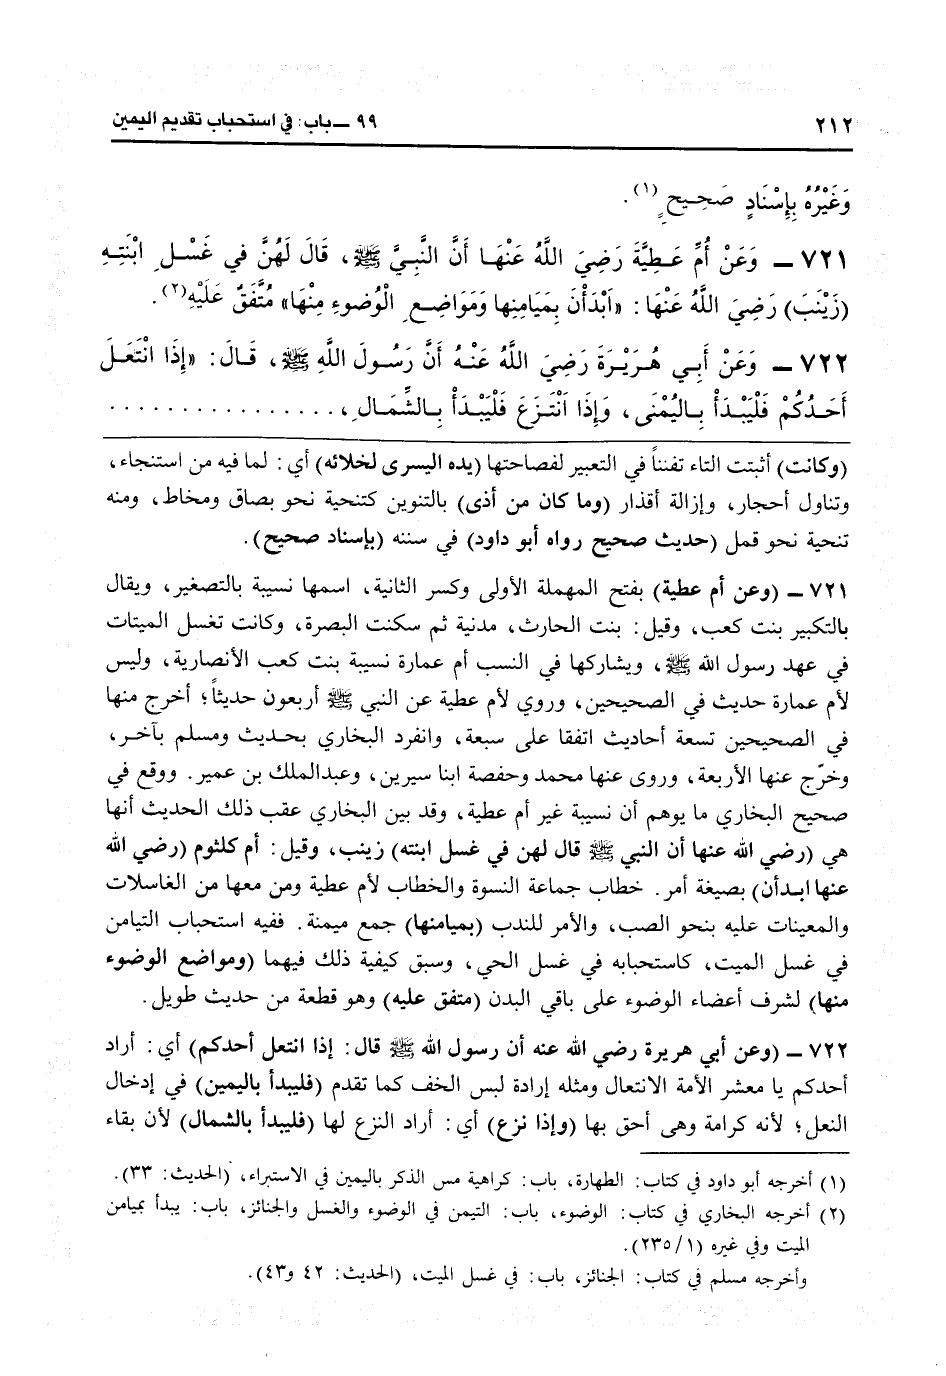 ٢١٢
٩٩ ــ باب: في استحباب تقديم اليمين
وَغَيْرُهُ بِإِسْنَادٍ صَحِيحٍ(١).
٧٢١ ــ وَعَنْ أُمِّ عَطِيَّةَ رَضِيَ اللَّهُ عَنْهَا أَنَّ النَّبِيَّ ﷺ، قَالَ لَهُنَّ في غَسْلِ ابْنَتِهِ
(زَيْنَبَ) رَضِيَ اللَّهُ عَنْهَا: «اَبْدَأْنَ بِمَيَامِنِها وَمَوَاضِعِ الْوُضوءِ مِنْهَا» مُتَّفَقٌ عَلَيْهِ(٢).
٧٢٢ ــ وَعَنْ أَبِي هُرَيْرَةَ رَضِيَ اللَّهُ عَنْهُ أَنَّ رَسُولَ اللَّهِ ﷺ، قَالَ: «إِذَا انْتَعَلَ
أَحَدُكُمْ فَلْيَبْدَأْ بِالْيُمْنَى، وَإِذَا اَنْتَزَعَ فَلْيَبْدَأْ بِالشِّمَالِ، ................
(وكانت) أثبتت التاء تفنناً في التعبير لفصاحتها (يده اليسرى لخلائه) أي: لما فيه من استنجاء،
وتناول أحجار، وإزالة أقذار (وما كان من أذى) بالتنوين كتنحية نحو بصاق ومخاط، ومنه
تنحية نحو قمل (حديث صحيح رواه أبو داود) في سننه (بإسناد صحيح).
٧٢١ ــ (وعن أم عطية) بفتح المهملة الأولى وكسر الثانية، اسمها نسيبة بالتصغير، ويقال
بالتكبير بنت كعب، وقيل: بنت الحارث، مدنية ثم سكنت البصرة، وكانت تغسل الميتات
في عهد رسول الله ﷺ، ويشاركها في النسب أم عمارة نسيبة بنت كعب الأنصارية، وليس
لأم عمارة حديث في الصحيحين، وروي لأم عطية عن النبي ﷺ أربعون حديثاً؛ أخرج منها
في الصحيحين تسعة أحاديث اتفقا على سبعة، وانفرد البخاري بحديث ومسلم بآخر،
وخرّج عنها الأربعة، وروى عنها محمد وحفصة ابنا سيرين، وعبدالملك بن عمير. ووقع في
صحيح البخاري ما يوهم أن نسيبة غير أم عطية، وقد بين البخاري عقب ذلك الحديث أنها
هي (رضي الله عنها أن النبي ﷺ قال لهن في غسل ابنته) زينب، وقيل: أم كلثوم (رضي الله
عنها ابدأن) بصيغة أمر. خطاب جماعة النسوة والخطاب لأم عطية ومن معها من الغاسلات
والمعينات عليه بنحو الصب، والأمر للندب (بميامنها) جمع ميمنة. ففيه استحباب التيامن
في غسل الميت، كاستحبابه في غسل الحي، وسبق كيفية ذلك فيهما (ومواضع الوضوء
منها) لشرف أعضاء الوضوء على باقي البدن (متفق عليه) وهو قطعة من حديث طويل.
٧٢٢ ــ (وعن أبي هريرة رضي الله عنه أن رسول الله ﷺ قال: إذا انتعل أحدكم) أي: أراد
أحدكم يا معشر الأمة الانتعال ومثله إرادة لبس الخف كما تقدم (فليبدأ باليمين) في إدخال
النعل؛ لأنه كرامة وهى أحق بها (وإذا نزع) أي: أراد النزع لها (فليبدأ بالشمال) لأن بقاء
(١) أخرجه أبو داود في كتاب: الطهارة، باب: كراهية مس الذكر باليمين في الاستبراء، (الحديث: ٣٣).
(٢) أخرجه البخاري في كتاب: الوضوء، باب: التيمن في الوضوء والغسل والجنائز، باب: يبدأ بميامن
الميت وفي غيره (٢٣٥/١).
وأخرجه مسلم في كتاب: الجنائز، باب: في غسل الميت، (الحديث: ٤٢ و٤٣).